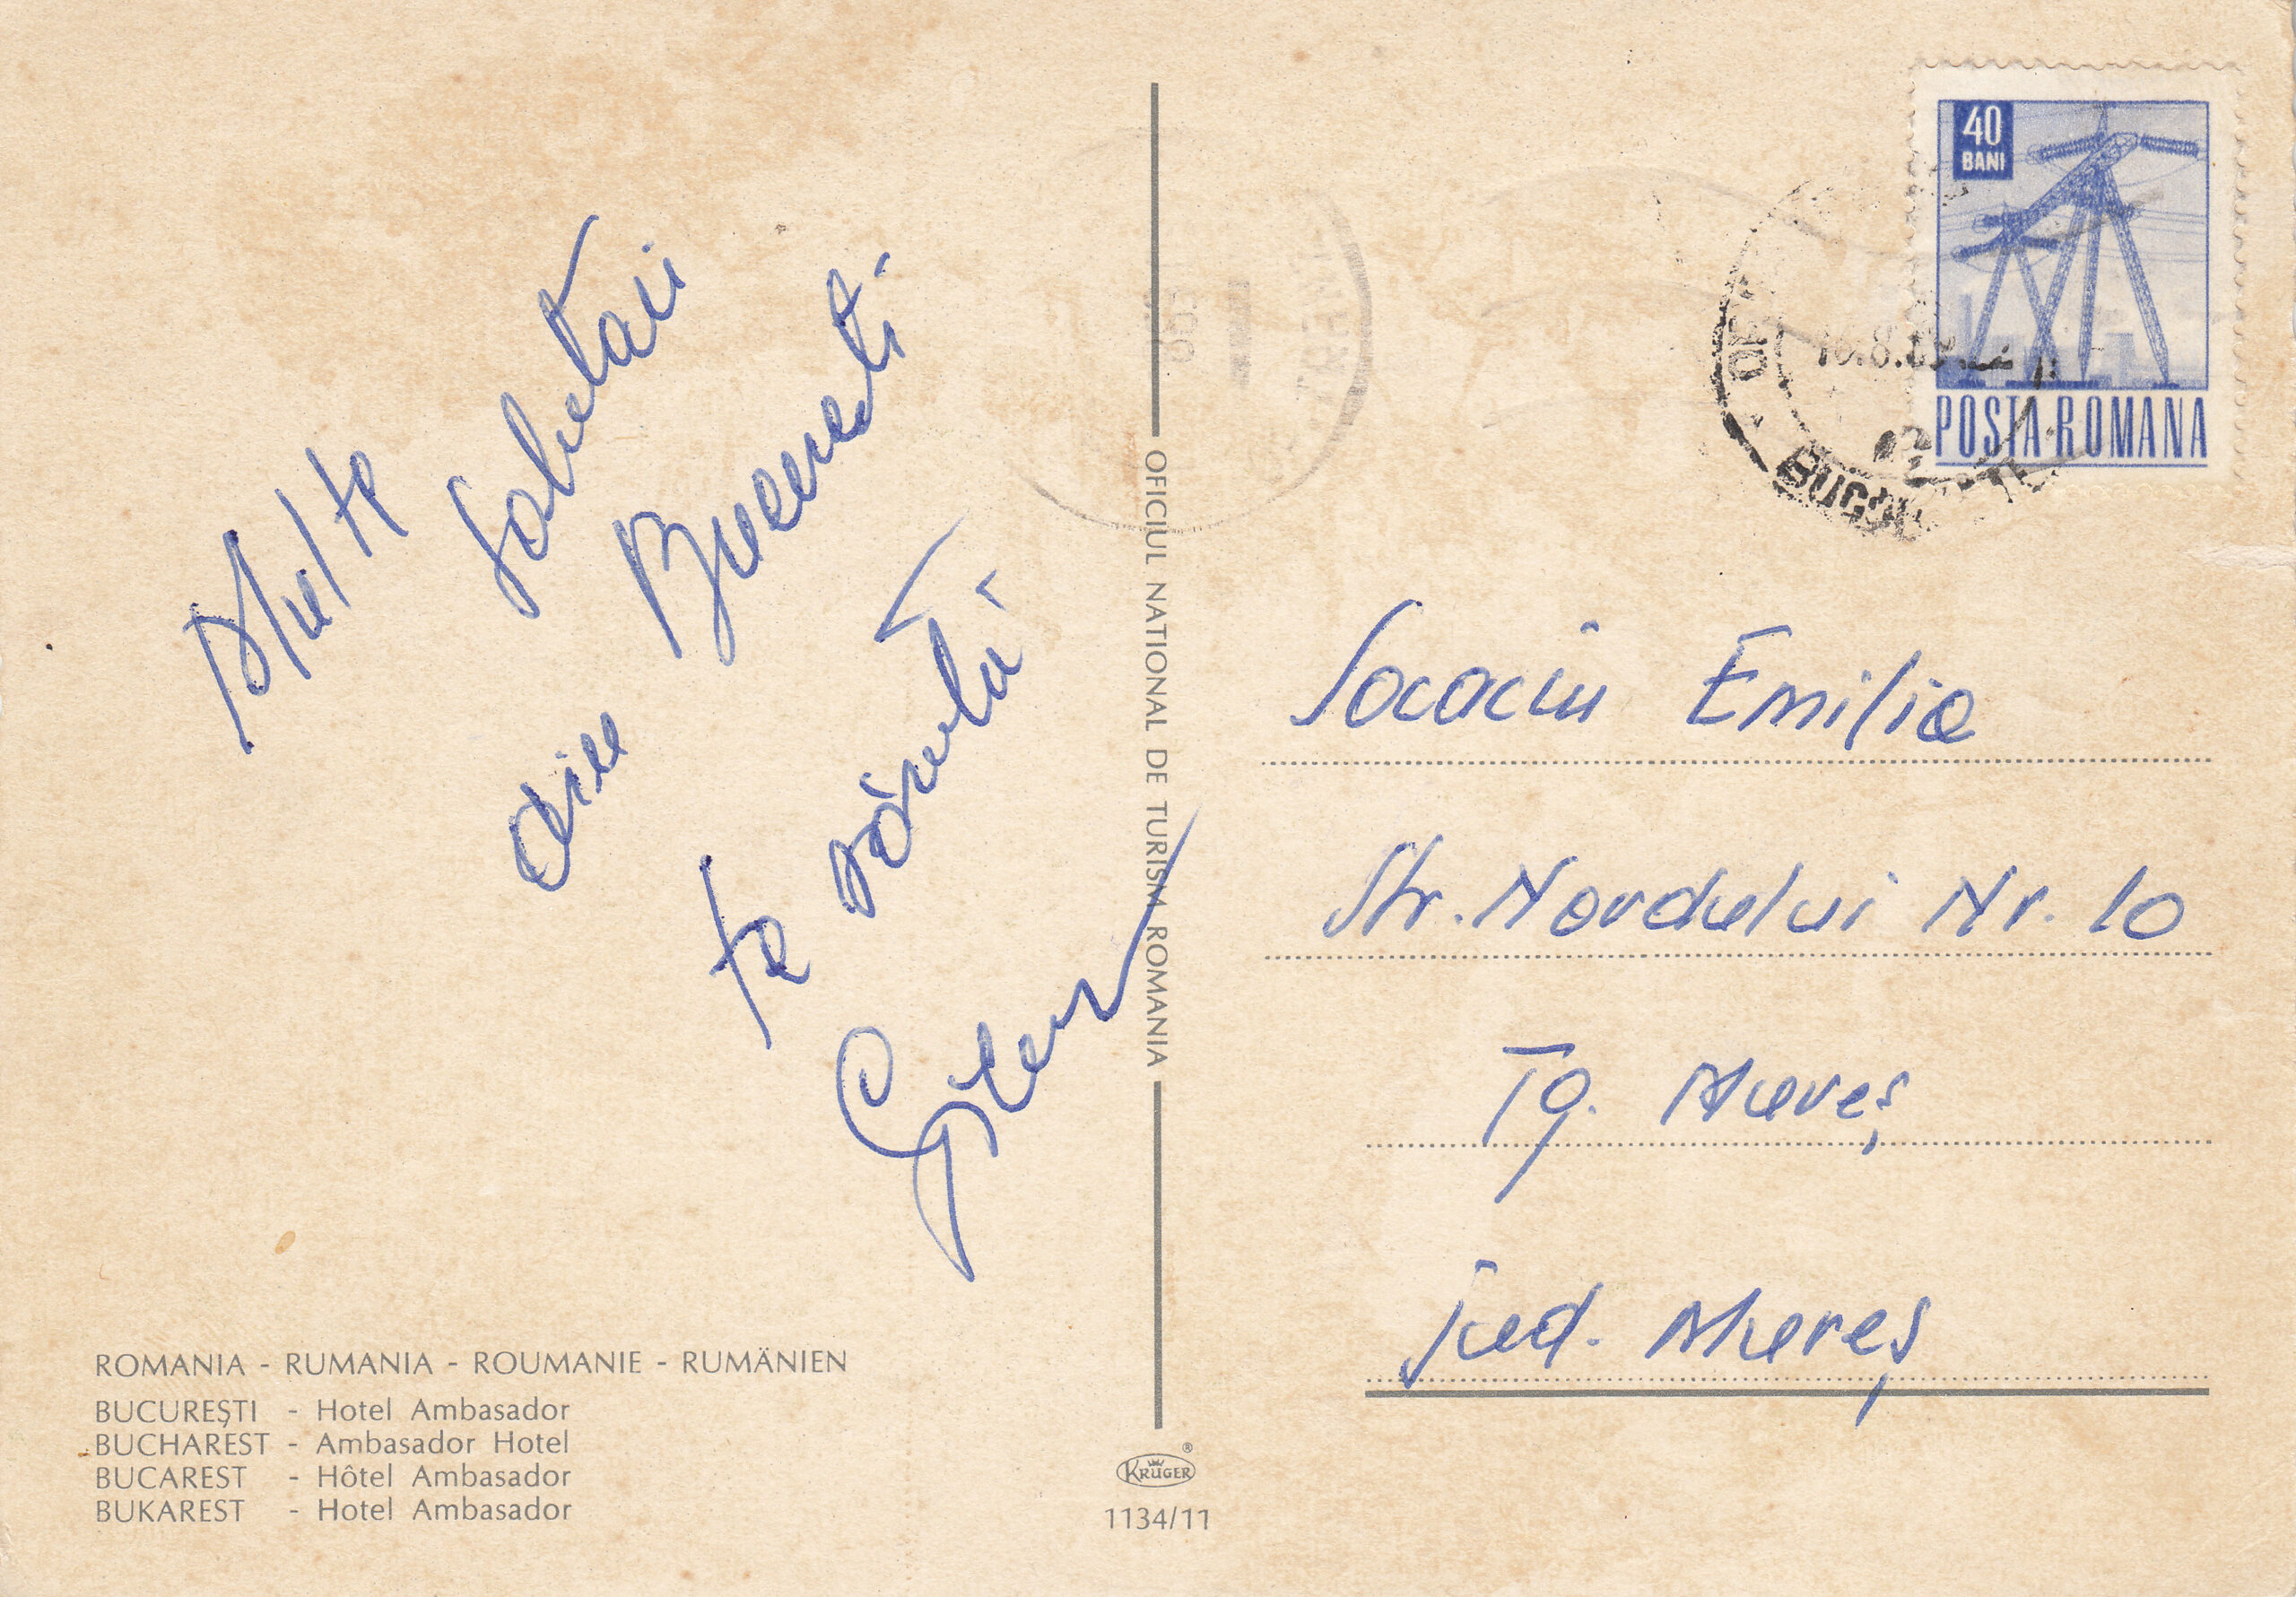 Multe
Salutari
din Bucuresti
te sărută
Socaciu Emilia
Str. Nordului Nr. 10
Tg. Mureș
jud. Mureș
40
BANI
POSTA ROMANA
OFICIUL NATIONAL DE TURISM ROMANIA
ROMANIA - RUMANIA - ROUMANIE - RUMÄNIEN
BUCUREȘTI - Hotel Ambasador
BUCHAREST - Ambasador Hotel
BUCAREST - Hôtel Ambasador
BUKAREST - Hotel Ambasador
KRÜGER ®
1134/11